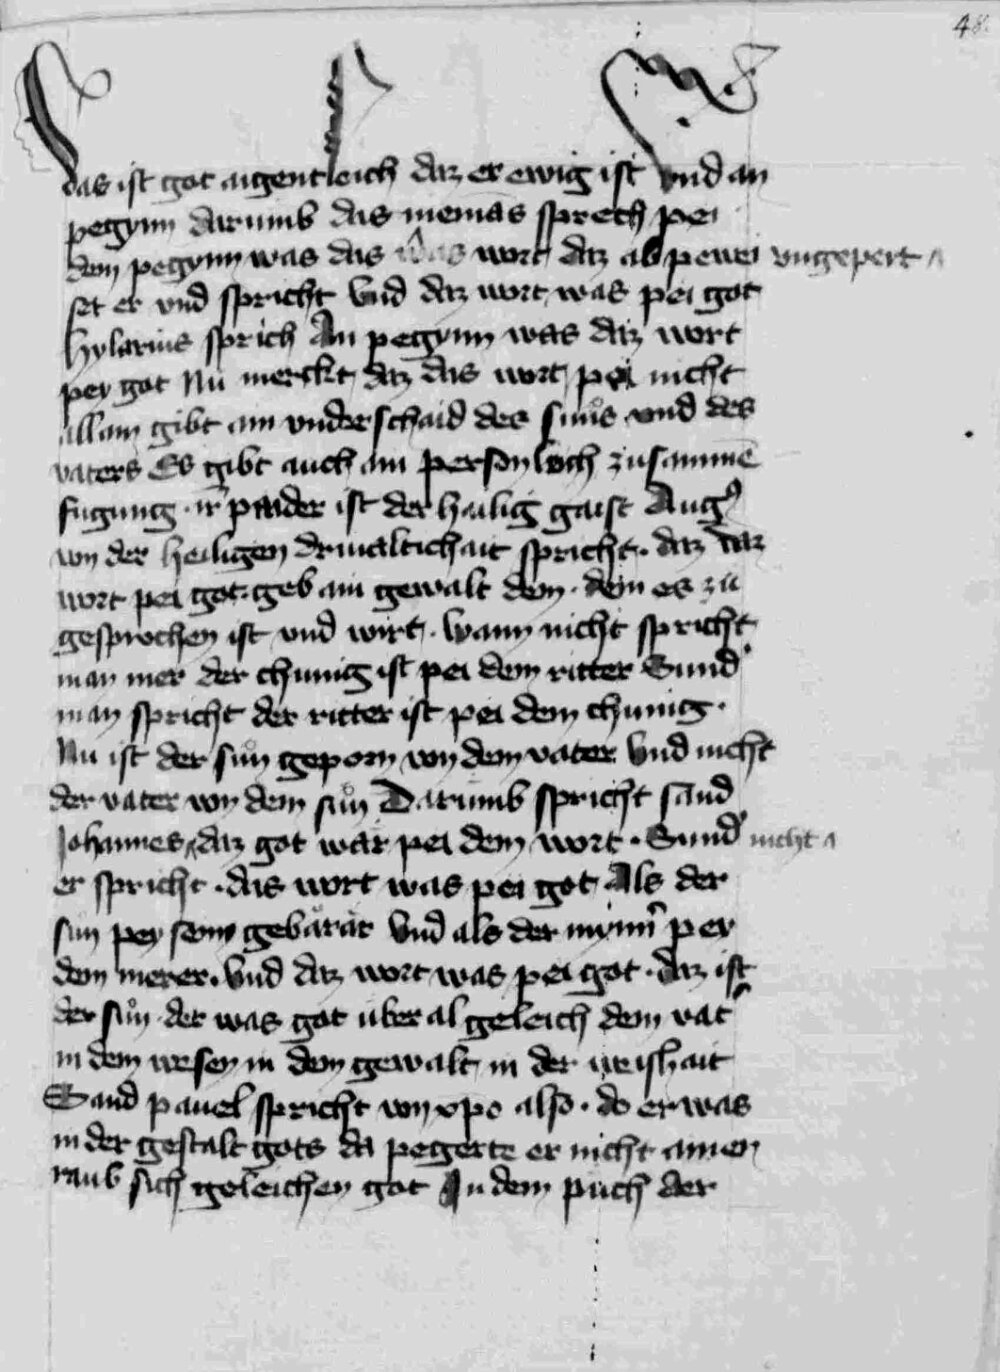 48.
das ist got aigentleich daz er ewig ist vnd an
pegynn darumb das niemās sprech pei
dem pegynn was das was wort daz ab pewei vngepert
set er vnd spricht Vnd daz wort was pei got
hylarius sprich An pegynn was daz wort
pey got Nu merckt daz das wort pei nicht
allain gibt ain vnderschaid des suns vnd des
vaters Es gibt auch ain personlich zusammē
fugung ir paider ist der heilig gaist Augꝰ
von der heiligen driualtichait spricht. daz daz
wort pei got. geb ain gewalt dem. dem es zu
gesprochen ist vnd wirt. wann nicht spricht
man mer der chunig ist pei dem ritter Sund'
man spricht der ritter ist pei dem chunig.
Nu ist der sun geporn von dem vater Vnd nicht
der vater von dem sun Darumb spricht sand
Johannes daz got war pei dem wort. Sund' nicht
er spricht. das wort was pei got Als der
sun pey seim gebärär Vnd als der mynn' pey
dem merer. Vnd daz wort was pei got. daz ist
der sun. der was got uberal geleich dem vat'
in dem wesen in dem gewalt in der weishait
Sand pauel spricht von xpo also. do er was
in der gestalt gots da pegerte er nicht ainen
raub sich geleichen got In dem puch der